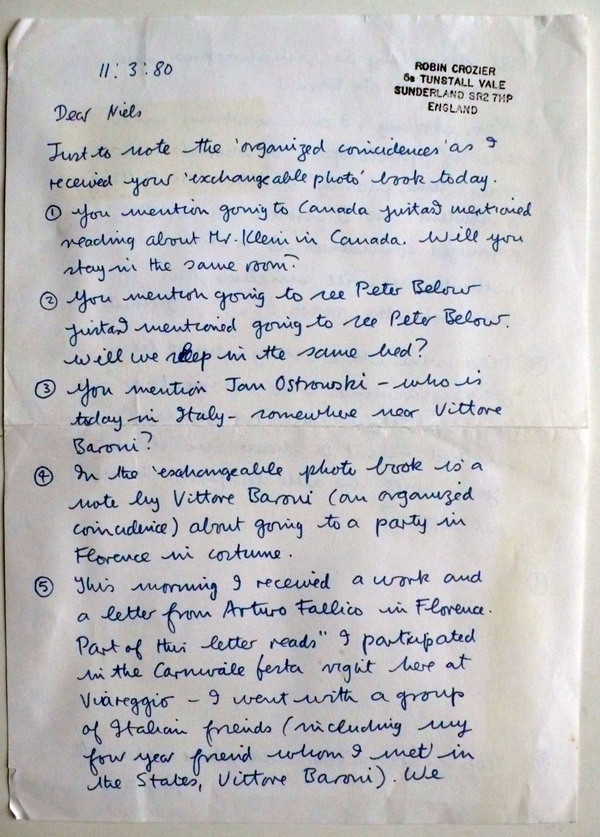 11:3:80
ROBIN CROZIER
6B TUNSTALL VALE
SUNDERLAND SR2 7HP
ENGLAND
Dear Niels
Just to note the 'organized coincidences' as I
received your 'exchangeable photo' book today.
① You mention going to Canada just as I mentioned
reading about Mr. Klein in Canada. Will you
stay in the same room?
② You mention going to see Peter Below
just as I mentioned going to see Peter Below.
Will we sleep in the same bed?
③ You mention Jan Ostrowski – who is
today in Italy – somewhere near Vittore
Baroni?
④ In the 'exchangeable photo book is a
note by Vittore Baroni (an organized
coincidence) about going to a party in
Florence in costume.
⑤ This morning I received a work and
a letter from Arturo Fallico in Florence.
Part of this letter reads " I participated
in the Carnivale festa right here at
Viareggio – I went with a group
of Italian friends (including my
four year friend whom I met in
the States, Vittore Baroni). We